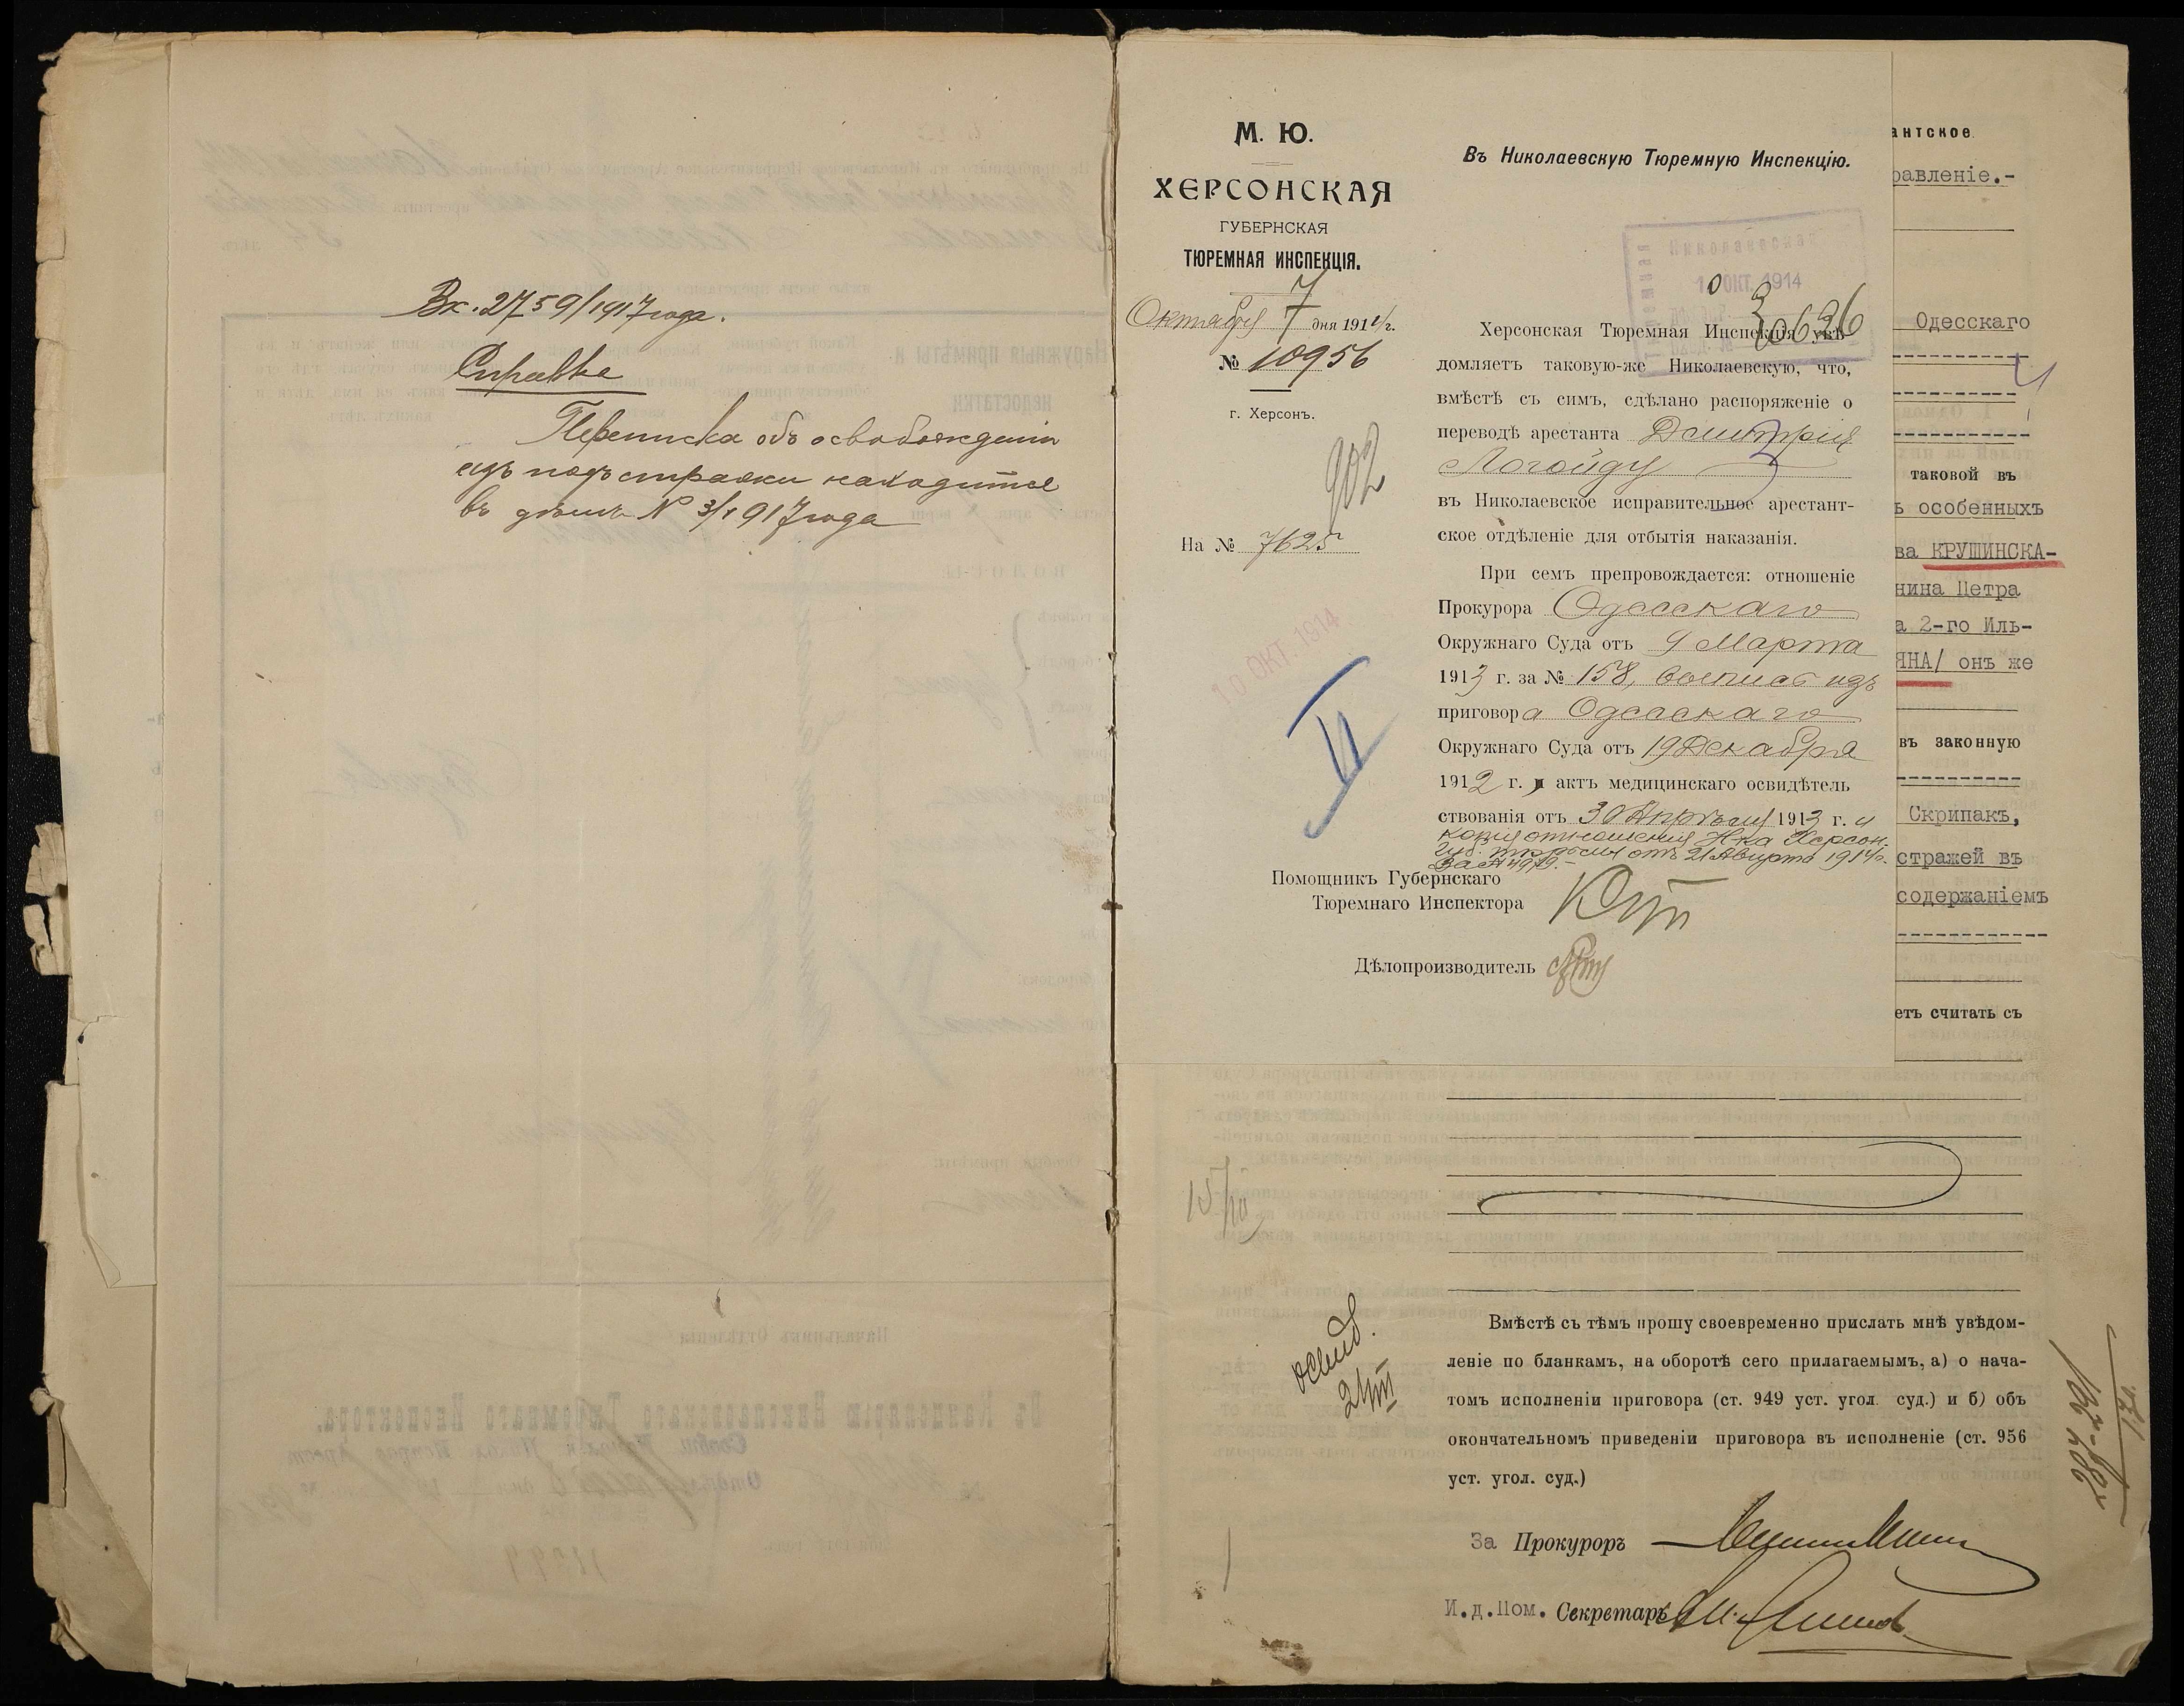 Вх. 2759/1917 года.
Справка
Переписка объ освобожденіи
изъ подъ стражи находится
въ дѣлѣ № 3/1917 года
М. Ю.
ХЕРСОНСКАЯ
ГУБЕРНСКАЯ
ТЮРЕМНАЯ ИНСПЕКЦІЯ.
7
Октября 7 дня 1914 г.
№ 10956
г. Херсонъ.
902
На № 7625
10 ОКТ. 1914
II
Въ Николаевскую Тюремную Инспекцію.
Николаевская
10 ОКТ. 1914
Херсонская Тюремная Инспекція увѣ-
домляетъ таковую-же Николаевскую, что,
вмѣстѣ съ симъ, сдѣлано распоряженіе о
переводѣ арестанта Дмитрія
Логойду
въ Николаевское исправительное арестант-
ское отдѣленіе для отбытія наказанія.
При семъ препровождается: отношеніе
Прокурора Одесскаго
Окружнаго Суда отъ 9 Марта
1913 г. за № 158, выпись изъ
приговора Одесскаго
Окружнаго Суда отъ 19 Декабря
1912 г. актъ медицинскаго освидѣтель
ствованія отъ 30 Апрѣля 1913 г. и
копія отношенія Н-ка Херсон.
Губ. тюрьмы отъ 21 Августа 1914 г.
за №
Помощникъ Губернскаго
Тюремнаго Инспектора
Дѣлопроизводитель
антское
равленіе.-
Одесскаго
таковой въ
ъ особенныхъ
ва КРУШИНСКА-
нина Петра
а 2-го Иль-
ЯНА/ онъ же
въ законную
Скрипакъ,
стражей въ
содержаніемъ
етъ считать съ
15/10
освоб.
21/III
Вмѣстѣ съ тѣмъ прошу своевременно прислать мнѣ увѣдом-
леніе по бланкамъ, на оборотѣ сего прилагаемымъ, а) о нача-
томъ исполненіи приговора (ст. 949 уст. угол. суд.) и б) объ
окончательномъ приведеніи приговора въ исполненіе (ст. 956
уст. угол. суд.)
За Прокуроръ
И.д.Пом. Секретарь